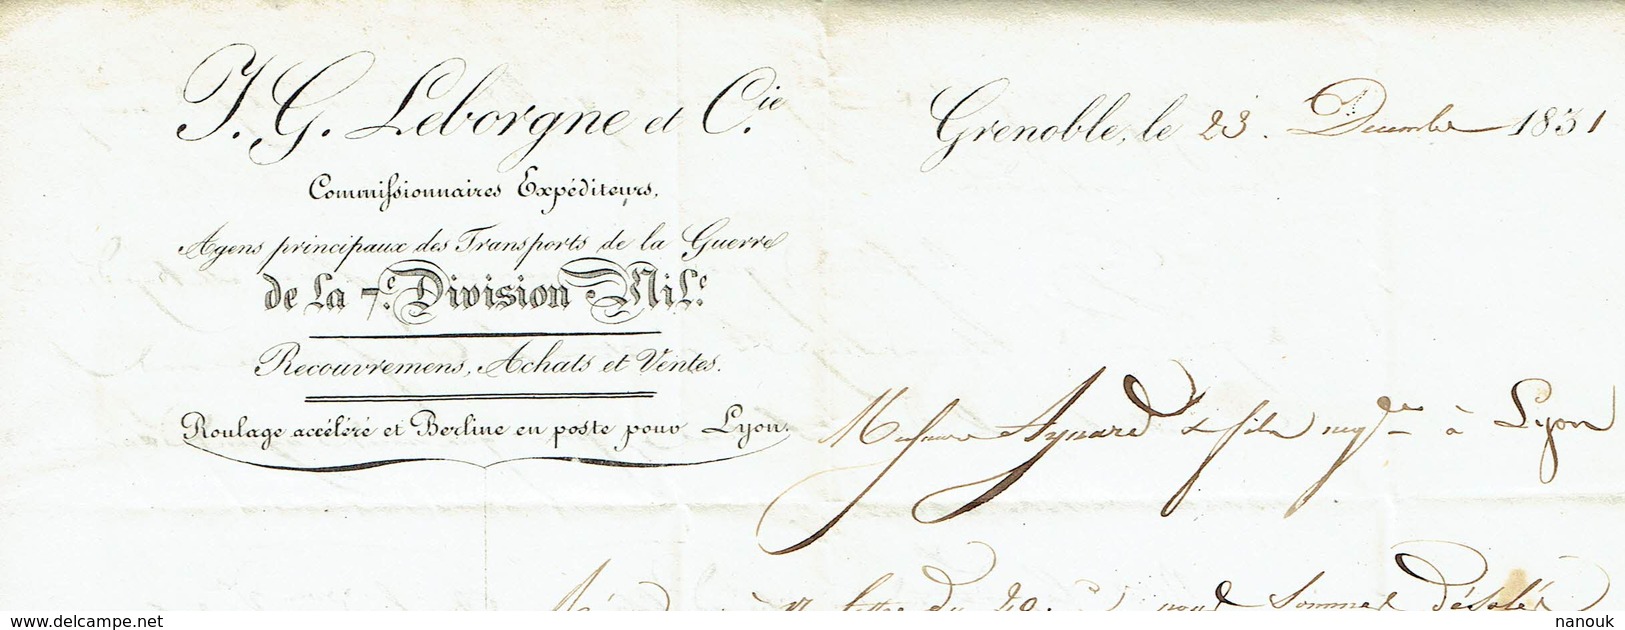 J. G. Leborgne et C.ie
Grenoble, le 23. Decembre 1831
Commissionnaires Expéditeurs,
Agens principaux des Transports de la Guerre
de La 7.e Division Mil.e
Recouvremens, Achats et Ventes.
Roulage accéléré et Berline en poste pour Lyon.
Messieurs Aynard & fils negts à Lyon
à lettre du 20 nous sommes désolés
delcampe.net
nanouk